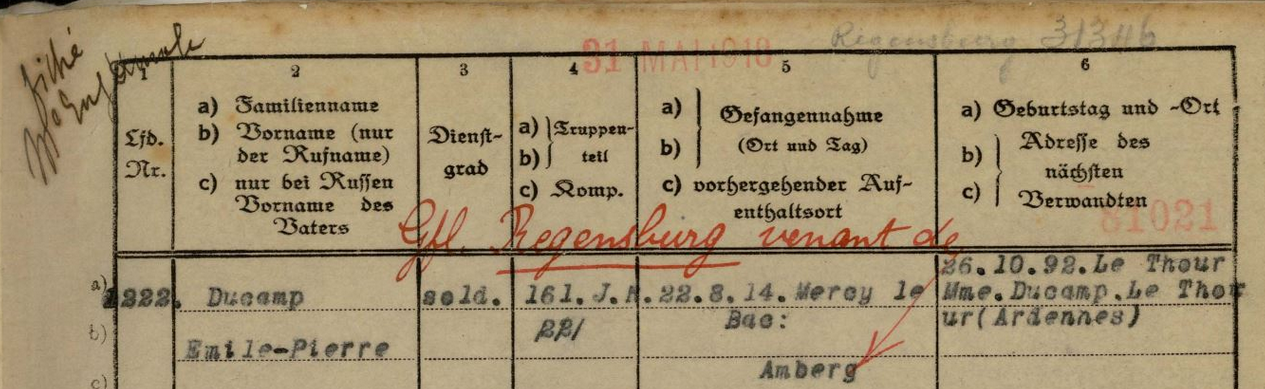 fiché
Regensburg 31346
31 MAI 1918
1 2 3 4 5 6
Lfd.
Nr.
a) Familienname
b) Vorname (nur
der Rufname)
c) nur bei Russen
Vorname des
Vaters
Dienst-
grad
a) Truppen-
b) teil
c) Komp.
a) Gefangennahme
b) (Ort und Tag)
c) vorhergehender Auf-
enthaltsort
a) Geburtstag und -Ort
b) Adresse des
nächsten
c) Verwandten
81021
Gfl. Regensburg venant de
26.10.92.Le Thour
a) 1222. Ducamp sold. 161. J.R. 22.8.14. Mercy le Mme.Ducamp.Le Tho
22/ Bac: ur(Ardennes)
b) Emile-Pierre
Amberg
c)